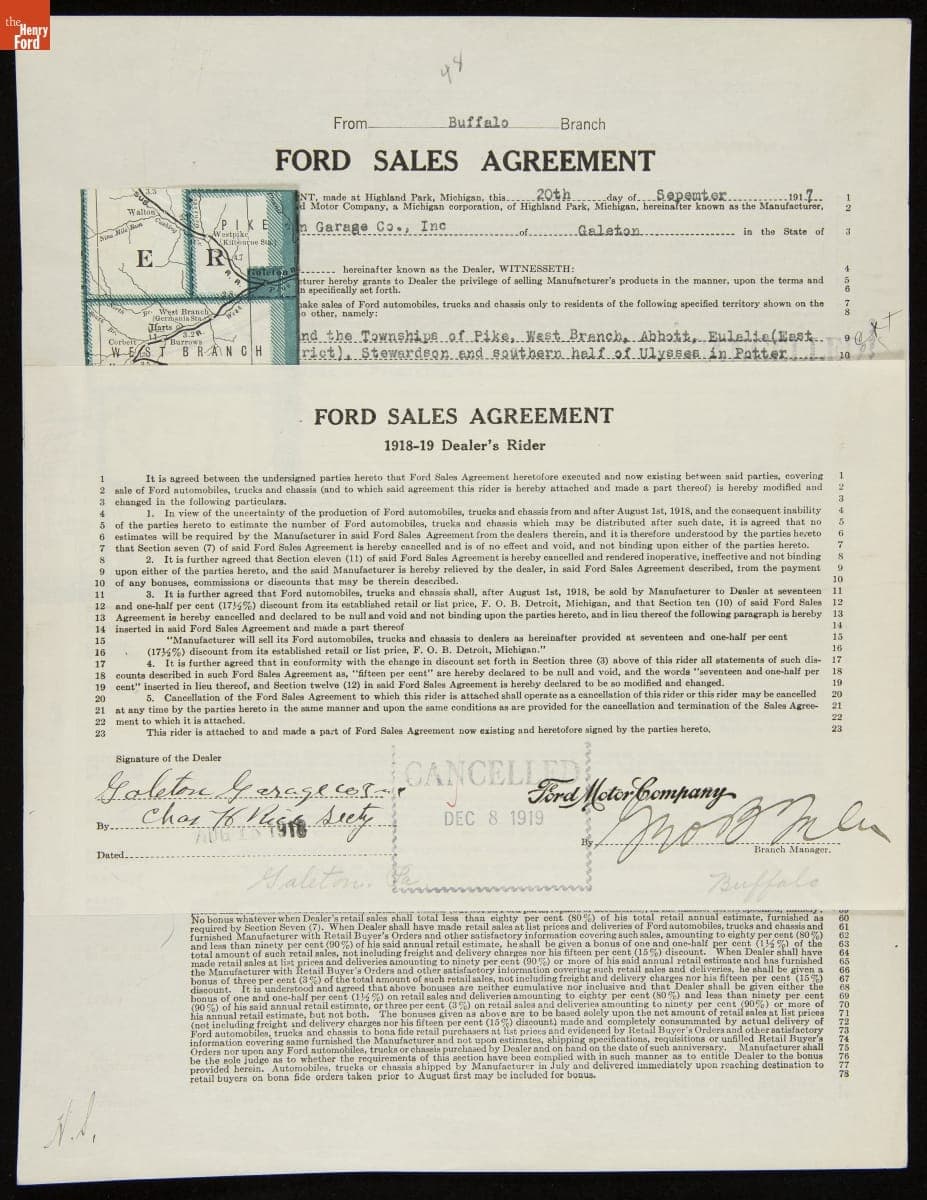 the
Henry
Ford
94
From Buffalo Branch
FORD SALES AGREEMENT
NT, made at Highland Park, Michigan, this 20th day of Sepemter 1917 1
d Motor Company, a Michigan corporation, of Highland Park, Michigan, hereinafter known as the Manufacturer, 2
n Garage Co., Inc of Galeton in the State of 3
hereinafter known as the Dealer, WITNESSETH: 4
cturer hereby grants to Dealer the privilege of selling Manufacturer's products in the manner, upon the terms and 5
n specifically set forth. 6
ake sales of Ford automobiles, trucks and chassis only to residents of the following specified territory shown on the 7
o other, namely: 8
nd the Townships of Pike, West Branch, Abbott, Eulalia(East 9
rict), Stewardson and southern half of Ulysses in Potter 10
3.3
SUS.
Walton
PIKE
Westpike
Kilbourne Sta.
Nine Mile Run
Cushing
E
R
4.7
Galeton
R. R.
Pine
West Branch
(Germania Sta.)
Harts
3.2
Corbett
Burrows
WEST BRANCH
FORD SALES AGREEMENT
1918-19 Dealer's Rider
1 It is agreed between the undersigned parties hereto that Ford Sales Agreement heretofore executed and now existing between said parties, covering 1
2 sale of Ford automobiles, trucks and chassis (and to which said agreement this rider is hereby attached and made a part thereof) is hereby modified and 2
3 changed in the following particulars. 3
4 1. In view of the uncertainty of the production of Ford automobiles, trucks and chassis from and after August 1st, 1918, and the consequent inability 4
5 of the parties hereto to estimate the number of Ford automobiles, trucks and chassis which may be distributed after such date, it is agreed that no 5
6 estimates will be required by the Manufacturer in said Ford Sales Agreement from the dealers therein, and it is therefore understood by the parties hereto 6
7 that Section seven (7) of said Ford Sales Agreement is hereby cancelled and is of no effect and void, and not binding upon either of the parties hereto. 7
8 2. It is further agreed that Section eleven (11) of said Ford Sales Agreement is hereby cancelled and rendered inoperative, ineffective and not binding 8
9 upon either of the parties hereto, and the said Manufacturer is hereby relieved by the dealer, in said Ford Sales Agreement described, from the payment 9
10 of any bonuses, commissions or discounts that may be therein described. 10
11 3. It is further agreed that Ford automobiles, trucks and chassis shall, after August 1st, 1918, be sold by Manufacturer to Dealer at seventeen 11
12 and one-half per cent (17½%) discount from its established retail or list price, F. O. B. Detroit, Michigan, and that Section ten (10) of said Ford Sales 12
13 Agreement is hereby cancelled and declared to be null and void and not binding upon the parties hereto, and in lieu thereof the following paragraph is hereby 13
14 inserted in said Ford Sales Agreement and made a part thereof 14
15 "Manufacturer will sell its Ford automobiles, trucks and chassis to dealers as hereinafter provided at seventeen and one-half per cent 15
16 (17½%) discount from its established retail or list price, F. O. B. Detroit, Michigan." 16
17 4. It is further agreed that in conformity with the change in discount set forth in Section three (3) above of this rider all statements of such dis- 17
18 counts described in such Ford Sales Agreement as, "fifteen per cent" are hereby declared to be null and void, and the words "seventeen and one-half per 18
19 cent" inserted in lieu thereof, and Section twelve (12) in said Ford Sales Agreement is hereby declared to be so modified and changed. 19
20 5. Cancellation of the Ford Sales Agreement to which this rider is attached shall operate as a cancellation of this rider or this rider may be cancelled 20
21 at any time by the parties hereto in the same manner and upon the same conditions as are provided for the cancellation and termination of the Sales Agree- 21
22 ment to which it is attached. 22
23 This rider is attached to and made a part of Ford Sales Agreement now existing and heretofore signed by the parties hereto. 23
Signature of the Dealer
Galeton Garage Co Inc
CANCELLED
Ford Motor Company
By Chas H Rice Secty
DEC 8 1919
AUG 15 1918
By
Branch Manager.
Dated
Galeton, Pa
Buffalo
No bonus whatever when Dealer's retail sales shall total less than eighty per cent (80%) of his total retail annual estimate, furnished as 60
required by Section Seven (7). When Dealer shall have made retail sales at list prices and deliveries of Ford automobiles, trucks and chassis and 61
furnished Manufacturer with Retail Buyer's Orders and other satisfactory information covering such sales, amounting to eighty per cent (80%) 62
and less than ninety per cent (90%) of his said annual retail estimate, he shall be given a bonus of one and one-half per cent (1½%) of the 63
total amount of such retail sales, not including freight and delivery charges nor his fifteen per cent (15%) discount. When Dealer shall have 64
made retail sales at list prices and deliveries amounting to ninety per cent (90%) or more of his said annual retail estimate and has furnished 65
the Manufacturer with Retail Buyer's Orders and other satisfactory information covering such retail sales and deliveries, he shall be given a 66
bonus of three per cent (3%) of the total amount of such retail sales, not including freight and delivery charges nor his fifteen per cent (15%) 67
discount. It is understood and agreed that above bonuses are neither cumulative nor inclusive and that Dealer shall be given either the 68
bonus of one and one-half per cent (1½%) on retail sales and deliveries amounting to eighty per cent (80%) and less than ninety per cent 69
(90%) of his said annual retail estimate, or three per cent (3%) on retail sales and deliveries amounting to ninety per cent (90%) or more of 70
his annual retail estimate, but not both. The bonuses given as above are to be based solely upon the net amount of retail sales at list prices 71
(not including freight and delivery charges nor his fifteen per cent (15%) discount) made and completely consummated by actual delivery of 72
Ford automobiles, trucks and chassis to bona fide retail purchasers at list prices and evidenced by Retail Buyer's Orders and other satisfactory 73
information covering same furnished the Manufacturer and not upon estimates, shipping specifications, requisitions or unfilled Retail Buyer's 74
Orders nor upon any Ford automobiles, trucks or chassis purchased by Dealer and on hand on the date of such anniversary. Manufacturer shall 75
be the sole judge as to whether the requirements of this section have been complied with in such manner as to entitle Dealer to the bonus 76
provided herein. Automobiles, trucks or chassis shipped by Manufacturer in July and delivered immediately upon reaching destination to 77
retail buyers on bona fide orders taken prior to August first may be included for bonus. 78
H.S.